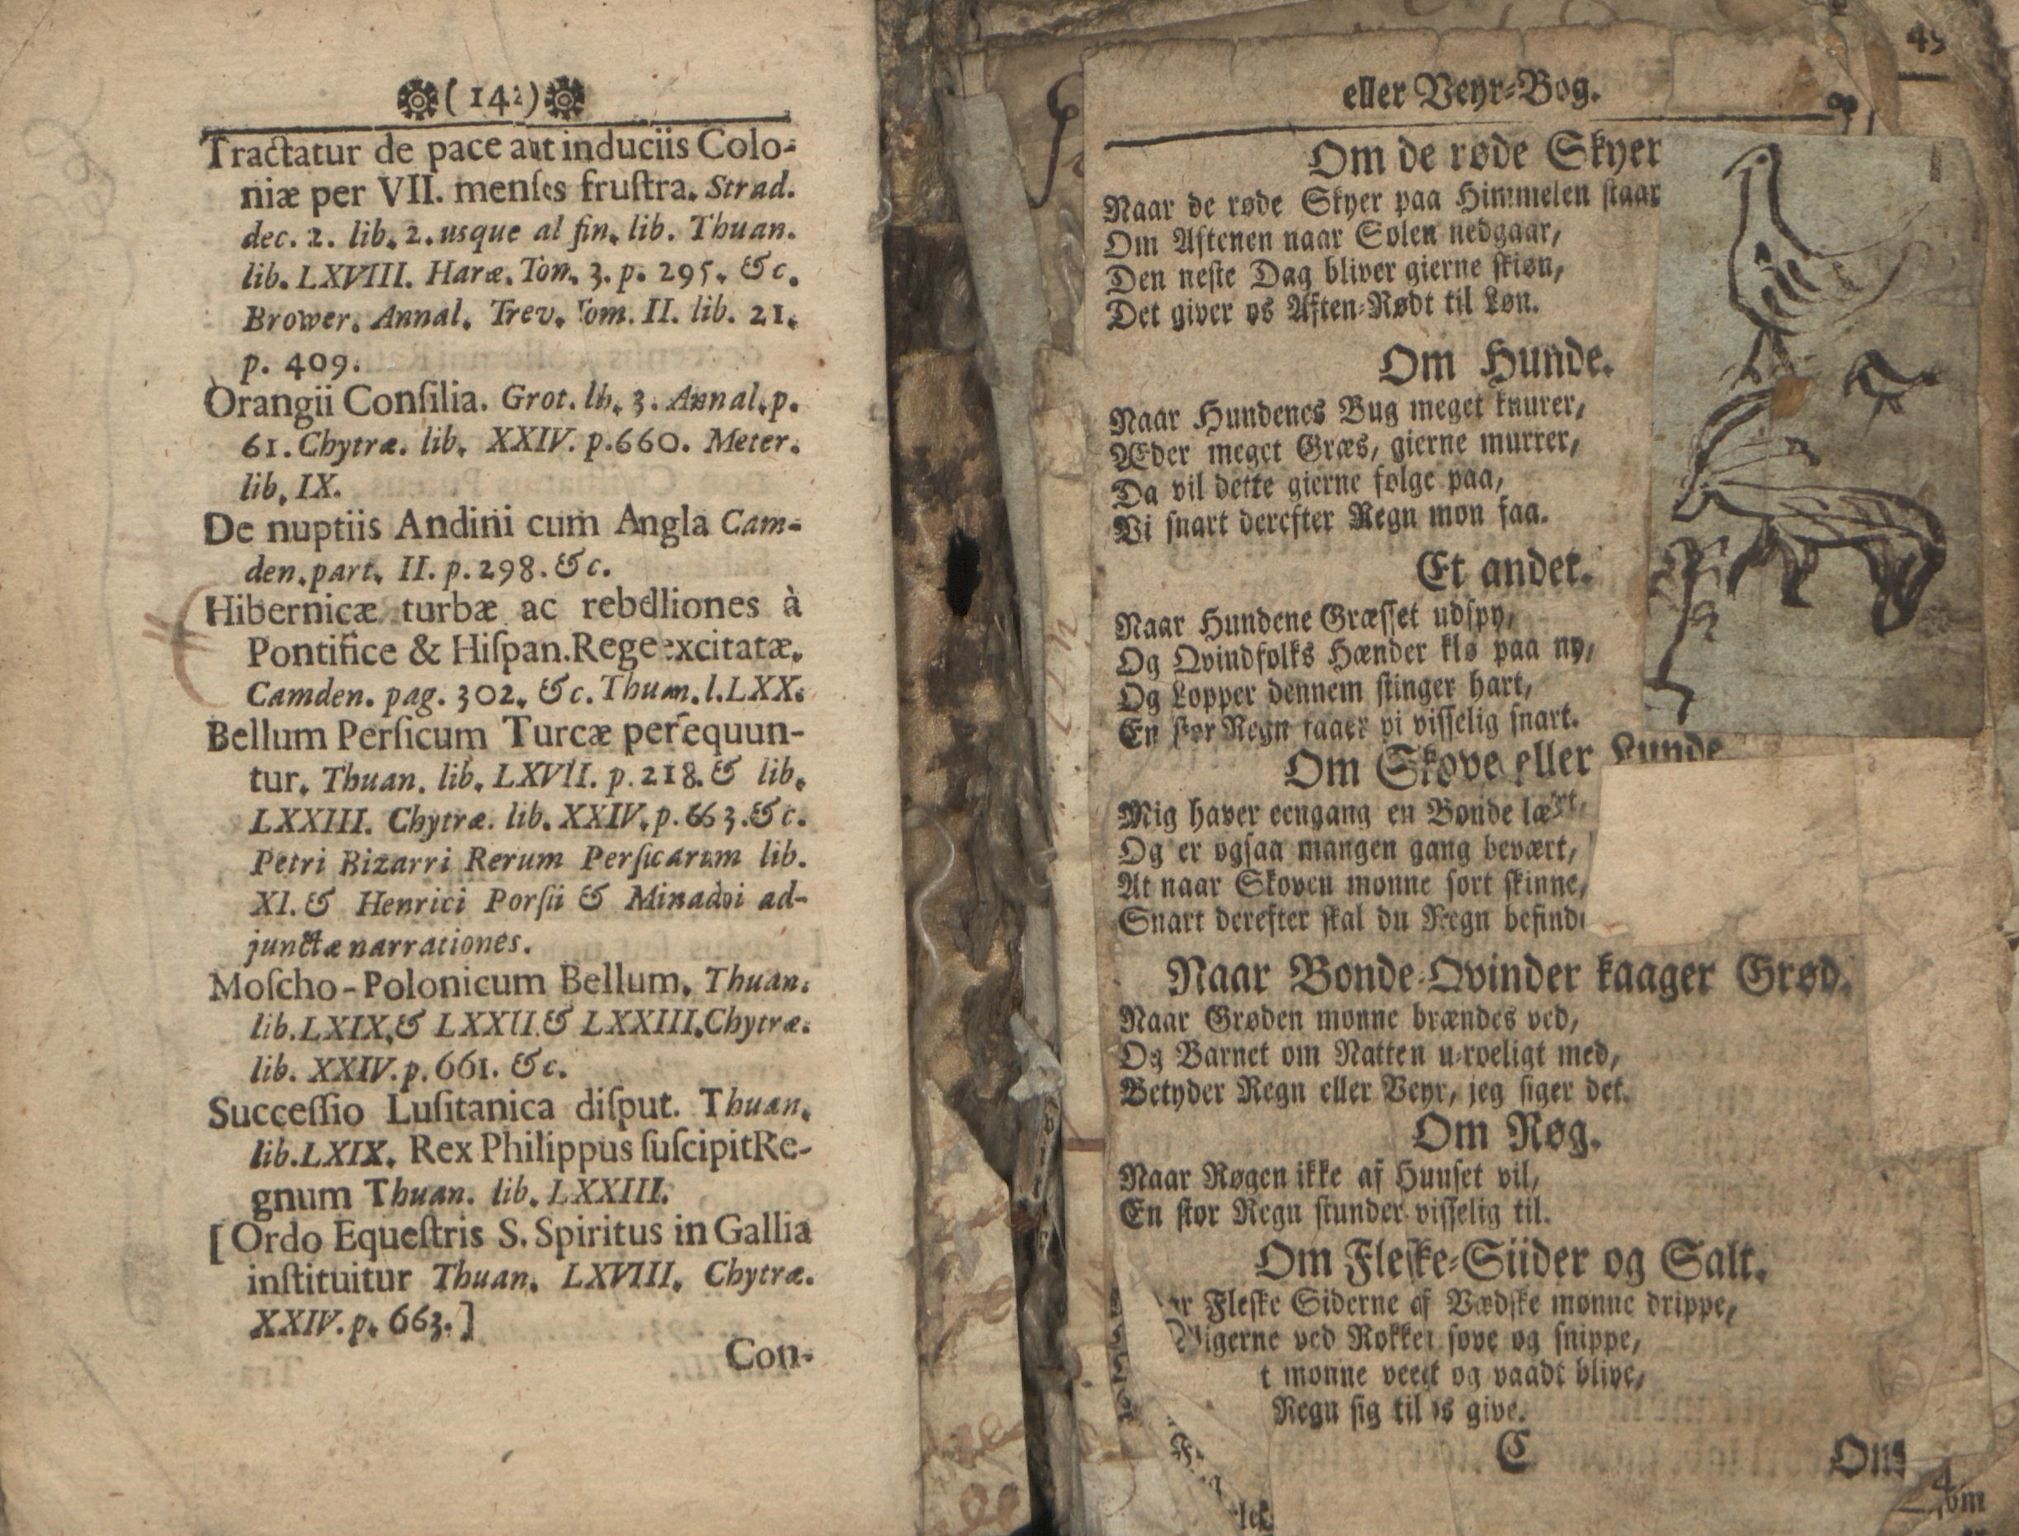 (142)
Tractatur de pace aut induciis Colo-
niæ per VII. menſes fruſtra. Strad.
dec. 2. lib. 2. usque al fin. lib. Thuan.
lib. LXVIII. Haræ. Tom. 3. p. 295. &c.
Brower. Annal. Trev. Tom. II. lib. 21.
p. 409.
Orangii Conſilia. Grot. lib. 3. Annal. p.
61. Chytræ. lib. XXIV. p. 660. Meter.
lib. IX.
De nuptiis Andini cum Angla Cam-
den. part. II. p. 298. &c.
Hibernicæ turbæ ac rebelliones à
Pontifice & Hiſpan. Rege excitatæ.
Camden. pag. 302. &c. Thuan. l. LXX.
Bellum Perſicum Turcæ perſequun-
tur. Thuan. lib. LXVII. p. 218. & lib.
LXXIII. Chytræ. lib. XXIV. p. 663. &c.
Petri Bizarri Rerum Perſicarum lib.
XI. & Henrici Porſii & Minadoi ad-
junctæ narrationes.
Moſcho-Polonicum Bellum. Thuan.
lib. LXIX. & LXXII. & LXXIII. Chytræ.
lib. XXIV. p. 661. &c.
Succeſſio Luſitanica diſput. Thuan.
lib. LXIX. Rex Philippus ſuſcipit Re-
gnum Thuan. lib. LXXIII.
[Ordo Equeſtris S. Spiritus in Gallia
inſtituitur Thuan. LXVIII. Chytræ.
XXIV. p. 663.]
Con-
49
eller Veyr-Bog.
Om de røde Skyer
Naar de røde Skyer paa Himmelen ſtaar
Om Aftenen naar Solen nedgaar,
Den neſte Dag bliver gierne ſkiøn,
Det giver os Aften-Rødt til Løn.
Om Hunde.
Naar Hundenes Bug meget knurer,
Æder meget Græs, gierne murrer,
Da vil dette gierne følge paa,
Vi ſnart derefter Regn mon faa.
Et andet.
Naar Hundene Græſſet udſpy,
Og Qvindfolks Hænder klø paa ny,
Og Lopper dennem ſtinger hart,
En ſtor Regn faaer vi viſſelig ſnart.
Om Skove eller Lunde
Mig haver eengang en Bonde lært,
Og er ogſaa mangen gang bevært,
At naar Skoven monne ſort ſkinne,
Snart derefter ſkal du Regn befinde
Naar Bonde-Qvinder kaager Grød.
Naar Grøden monne brændes ved,
Og Barnet om Natten u-roeligt med,
Betyder Regn eller Veyr, jeg ſiger det.
Om Røg.
Naar Røgen ikke af Huuſet vil,
En ſtor Regn ſtunder viſſelig til.
Om Fleſke-Siider og Salt.
Fleſke Siderne af Vædſke monne drippe,
Pigerne ved Rokken ſove og ſnippe,
monne veegt og vaadt blive,
Regn ſig til os give.
C
Om